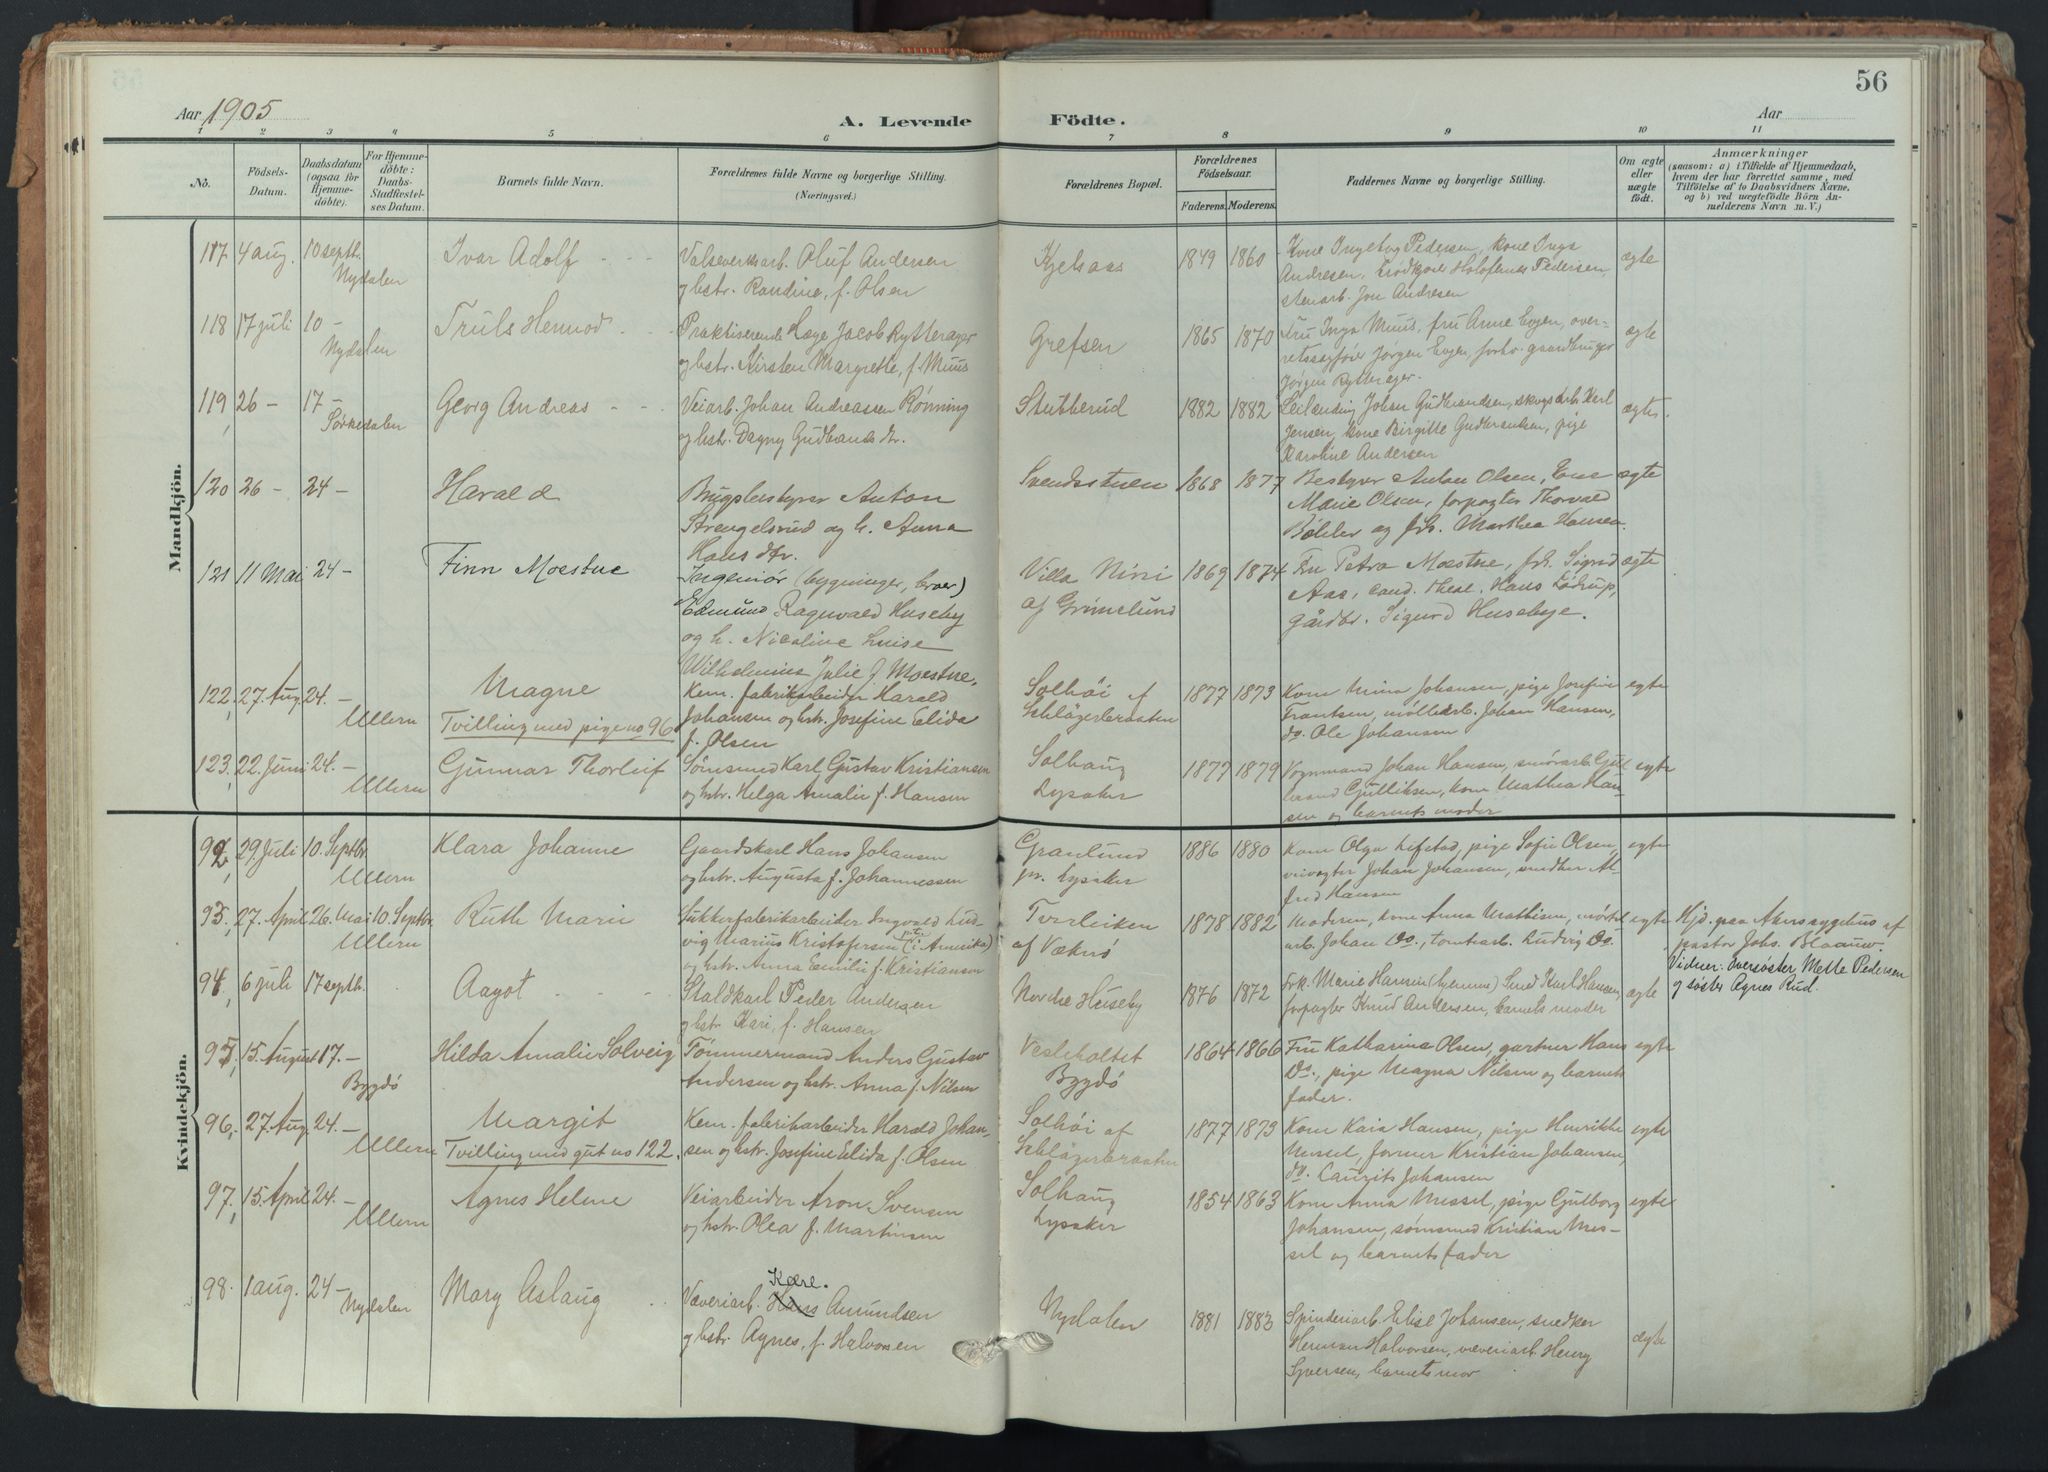 56
Aar 1905
A. Levende Födte.
Aar
1 2 3 4 5 6 7 8 9 10 11
No.
Födsels-Datum.
Daabsdatum (ogsaa for Hjemme-döbte).
For Hjemme-döbte: Daabs-Stadfæstel-ses Datum.
Barnets fulde Navn.
Forældrenes fulde Navne og borgerlige Stilling.
(Næringsvei.)
Forældrenes Bopæl.
Forældrenes Födselsaar.
Faderens. Moderens.
Faddernes Navne og borgerlige Stilling.
Om ægte eller uægte födt.
Anmærkninger
(saasom: a) i Tilfælde af Hjemmedaab, hvem der har forrettet samme, med Tilföielse af to Daabsvidners Navne, og b) ved uægtefödte Börn An-melderens Navn m. V.)
Mandkjön.
117, 4 aug. 10 septb. Nydalen
Ivar Adolf
Valseverksarb. Oluf Andersen
og hstr. Randine, f. Olsen
Kjelsaas
1849 1860
Kone Ingeborg Pedersen, kone Inga
Andresen, Holofernes Pedersen,
stenarb. Jon Andresen
ægte
118 17 juli 10 – Nydalen
Truls Hennod
Praktiserende Læge Jacob Rytterager
og hstr. Kirsten Margrethe, f. Muus
Grefsen
1865 1870
Fru Inga Muus, fru Anne Evjen, over-
retssagfører Jørgen Evjen, forhv. gaardbruger
Jørgen Rytterager.
ægte
119, 26 – 17 – Sørkedalen
Georg Andreas
Veiarb. Johan Andreassen Rønning
og hstr. Dagny Gudbrandsdtr.
Stubberud
1882 1882
Leilænding Johan Gudbrandsen, skogsarb. Karl
Jensen, kone Birgitte Gudbrandsen, pige
Karoline Andersen
ægte.
120 26 – 24 –
Harald
Brugsbestyrer Anton
Strengelsrud og h. Anna
Hansdtr.
Svendsstuen
1868 1877
Bestyrer Anton Olsen, Ene
Marie Olsen, forpagter Thorvald
Bøhler og frk. Marthea Hansen.
ægte
121 11 Mai 24 –
Finn Moestue
Ingeniör (bygninger, broer)
Edmund Ragnvald Huseby
og h. Nicoline Luise
Wilhelmine Julie f. Moestue.
Villa Nini
af Grimelund
1869 1874
Fru Petra Moestue, frk. Sigrid
Aas, cand. theol. Hans Lödrup,
gårdbr. Sigurd Husebye.
ægte
122, 27. Aug. 24. – Ullern
Magne
Tvilling med pige no 96
Kem. fabrikarbeider Harald
Johansen og hstr. Josefine Elida
f. Olsen
Solhöi af
Schlägerbraaten
1877 1873
Kone Mina Johansen, pige Josefine
Frantsen, møllearb. Johan Hansen,
do. Ole Johansen
egte
123, 22. Juni 24. – Ullern
Gunnar Thorleif
Sømsmed Karl Gustav Kristiansen
og hstr. Helga Amalie f. Hansen
Solhaug
Lysaker
1877 1879
Vognmand Johan Hansen, smörarb. Gul
brand Gulliksen, kone Mathea Han-
sen og barnets moder
egte
Kvindekjön.
92, 29. Juli 10. Septbr. Ullern
Klara Johanne
Gaardskarl Hans Johansen
og hstr. Augusta f. Johannessen
Granlund
pr. Lysaker
1886 1880
Kone Olga Lifstad, pige Sofie Olsen,
veivogter Johan Johansen, snedker Al-
fred Hansen
egte
93, 27. April 26. Mai 10. Septbr. Ullern
Ruth Marie
Sukkerfabrikarbeider Ingvald Lud-
vig Marius Kristofersen (i Amerika)
og hstr. Anna Emilie f. Kristiansen
Tverleiken
af Vækerø
1878 1882
Moderen, kone Anna Mathisen, mörtel
arb. Johan Do., tomtearb. Ludvig Do.
egte
Hjd. paa Akers sygehus af
pastor Johs. Blaauw.
Vidner: Oversøster Mette Pedersen
og søster Agnes Rud.
94, 6 juli 17 septb.
Aagot
Staldkarl Peder Andersen
og hstr. Kari, f. Hansen
Nordre Huseby
1876 1872
Frk. Marie Hansen (hjemme) Smed Karl Hansen,
forpagter Knud Andersen, barnets moder
ægte
95, 15. August 17. – Bygdö
Hilda Amalie Solveig
Tømmermand Anders Gustav
Andersen og hstr. Anna f. Nilsen
Vesleholtet
Bygdö
1864 1866
Fru Katharina Olsen, gartner Hans
Do., pige Magna Nilsen og barnets
fader.
egte
96, 27. Aug. 24. – Ullern
Margit
Tvilling med gut no 122.
Kem. fabrikarbeider Harald Johan-
sen og hstr. Josefine Elida f. Olsen
Solhöi af
Schlägerbraaten
1877 1873
Kone Kaia Hansen, pige Henrikke
Messel, former Kristian Johansen,
do. Lauritz Johansen
egte
97, 15. April 24. – Ullern
Agnes Helene
Veiarbeider Aron Svensen
og hstr. Olea f. Martinsen
Solhaug
Lysaker
1854 1863
Kone Anna Messel, pige Gjulborg
Johansen, sømsmed Kristian Mes-
sel og barnets fader
egte
98. 1 aug. 24 – Nydalen
Mary Aslaug
Kaare.
Væveriarb. Hans Amundsen
og hstr. Agnes, f. Halvorsen
Nydalen
1881 1883
Spinderiarb. Elise Johansen, snedker
Herman Halvorsen, væveriarb. Henry
Syversen, barnets mor
ægte